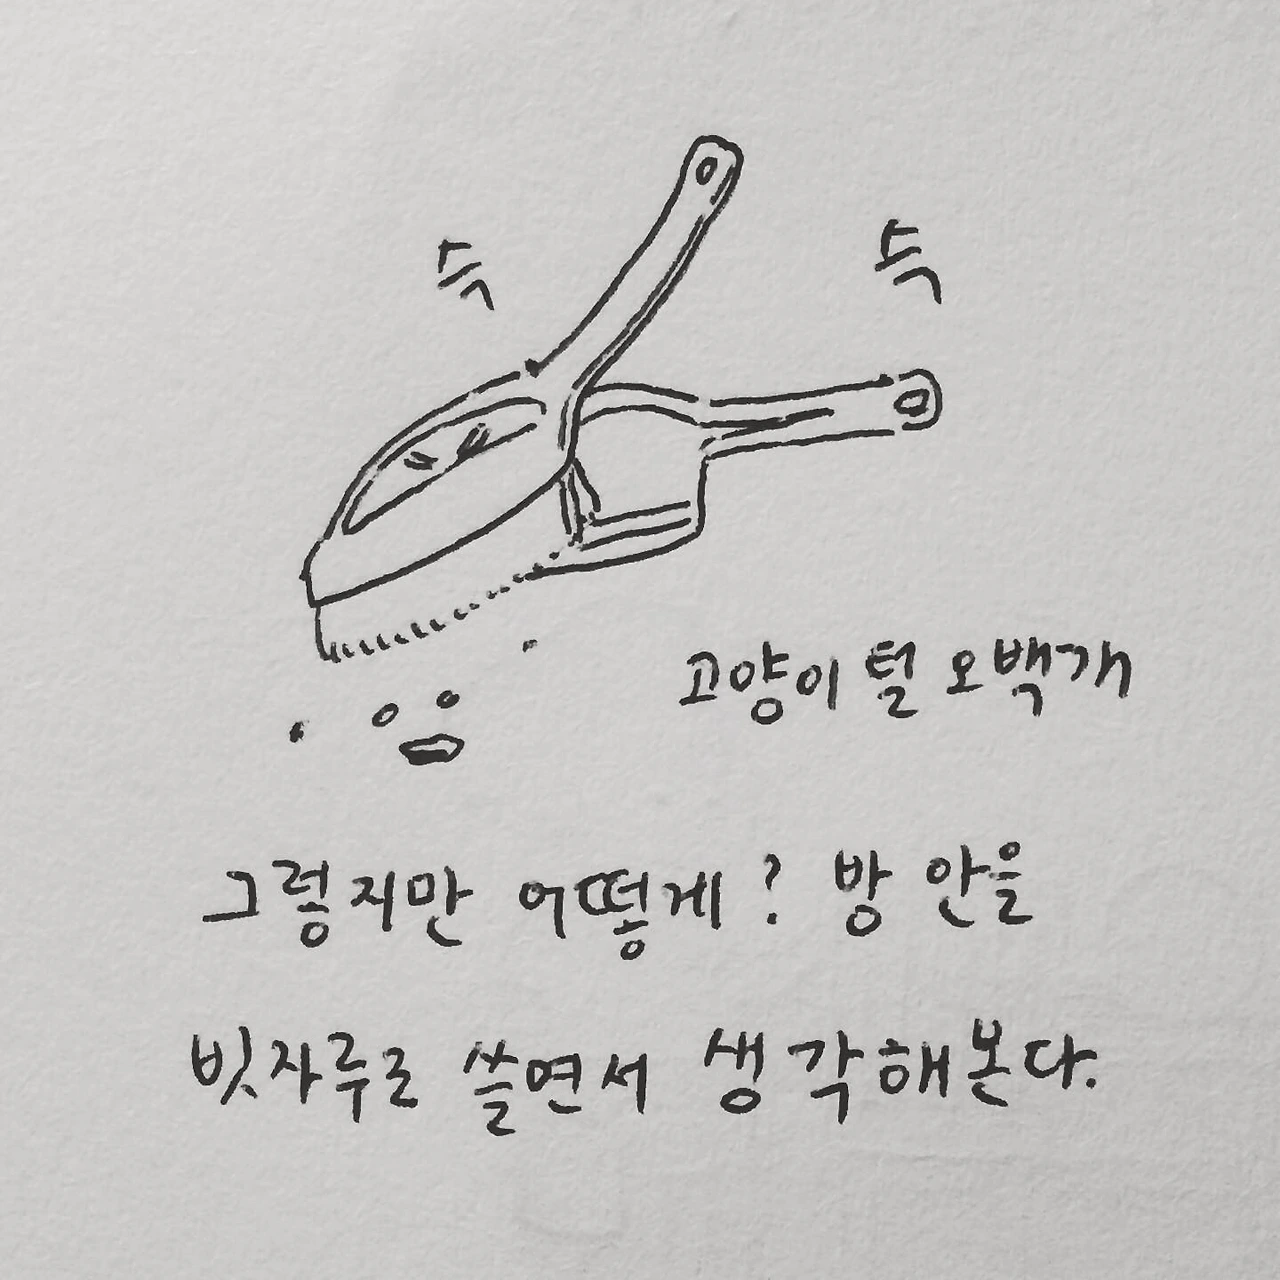 슥
슥
고양이 털 오백개
그렇지만 어떻게? 방 안을
빗자루로 쓸면서 생각해본다.